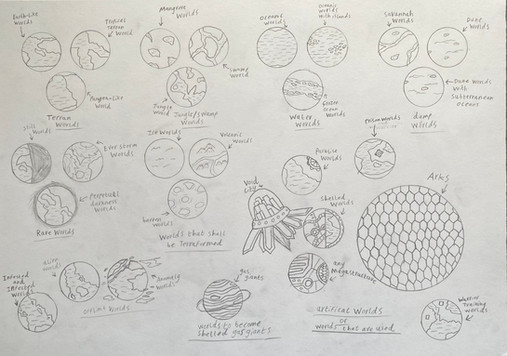 Earth-Like
Worlds
Tropical
Terran
World
Pangea-Like
World
Terran
Worlds
Mangrove
Worlds
Swamp
World
Jungle
World
Jungle/Swamp
Worlds
Oceanic
Worlds
Oceanic
Worlds
with islands
ocean Worlds
Water
Worlds
Savannah
Worlds
Dune
Worlds
Dune Worlds
with
Subterranean
oceans
Worlds
Worlds
Storm
Worlds
Perpetual
darkness
Worlds
Rare Worlds
Worlds
Volcanic
Worlds
barren
Worlds
Worlds that shall
be Terraformed
Void
City
Paradise
Worlds
Shelled
Worlds
any
Megastructure
Arks
Infected and
Infested
Worlds
Worlds
Worlds
Worlds
gas
giants
worlds to become
shelled gas giants
artifical Worlds
or
worlds that are used
Warrior
Training
worlds